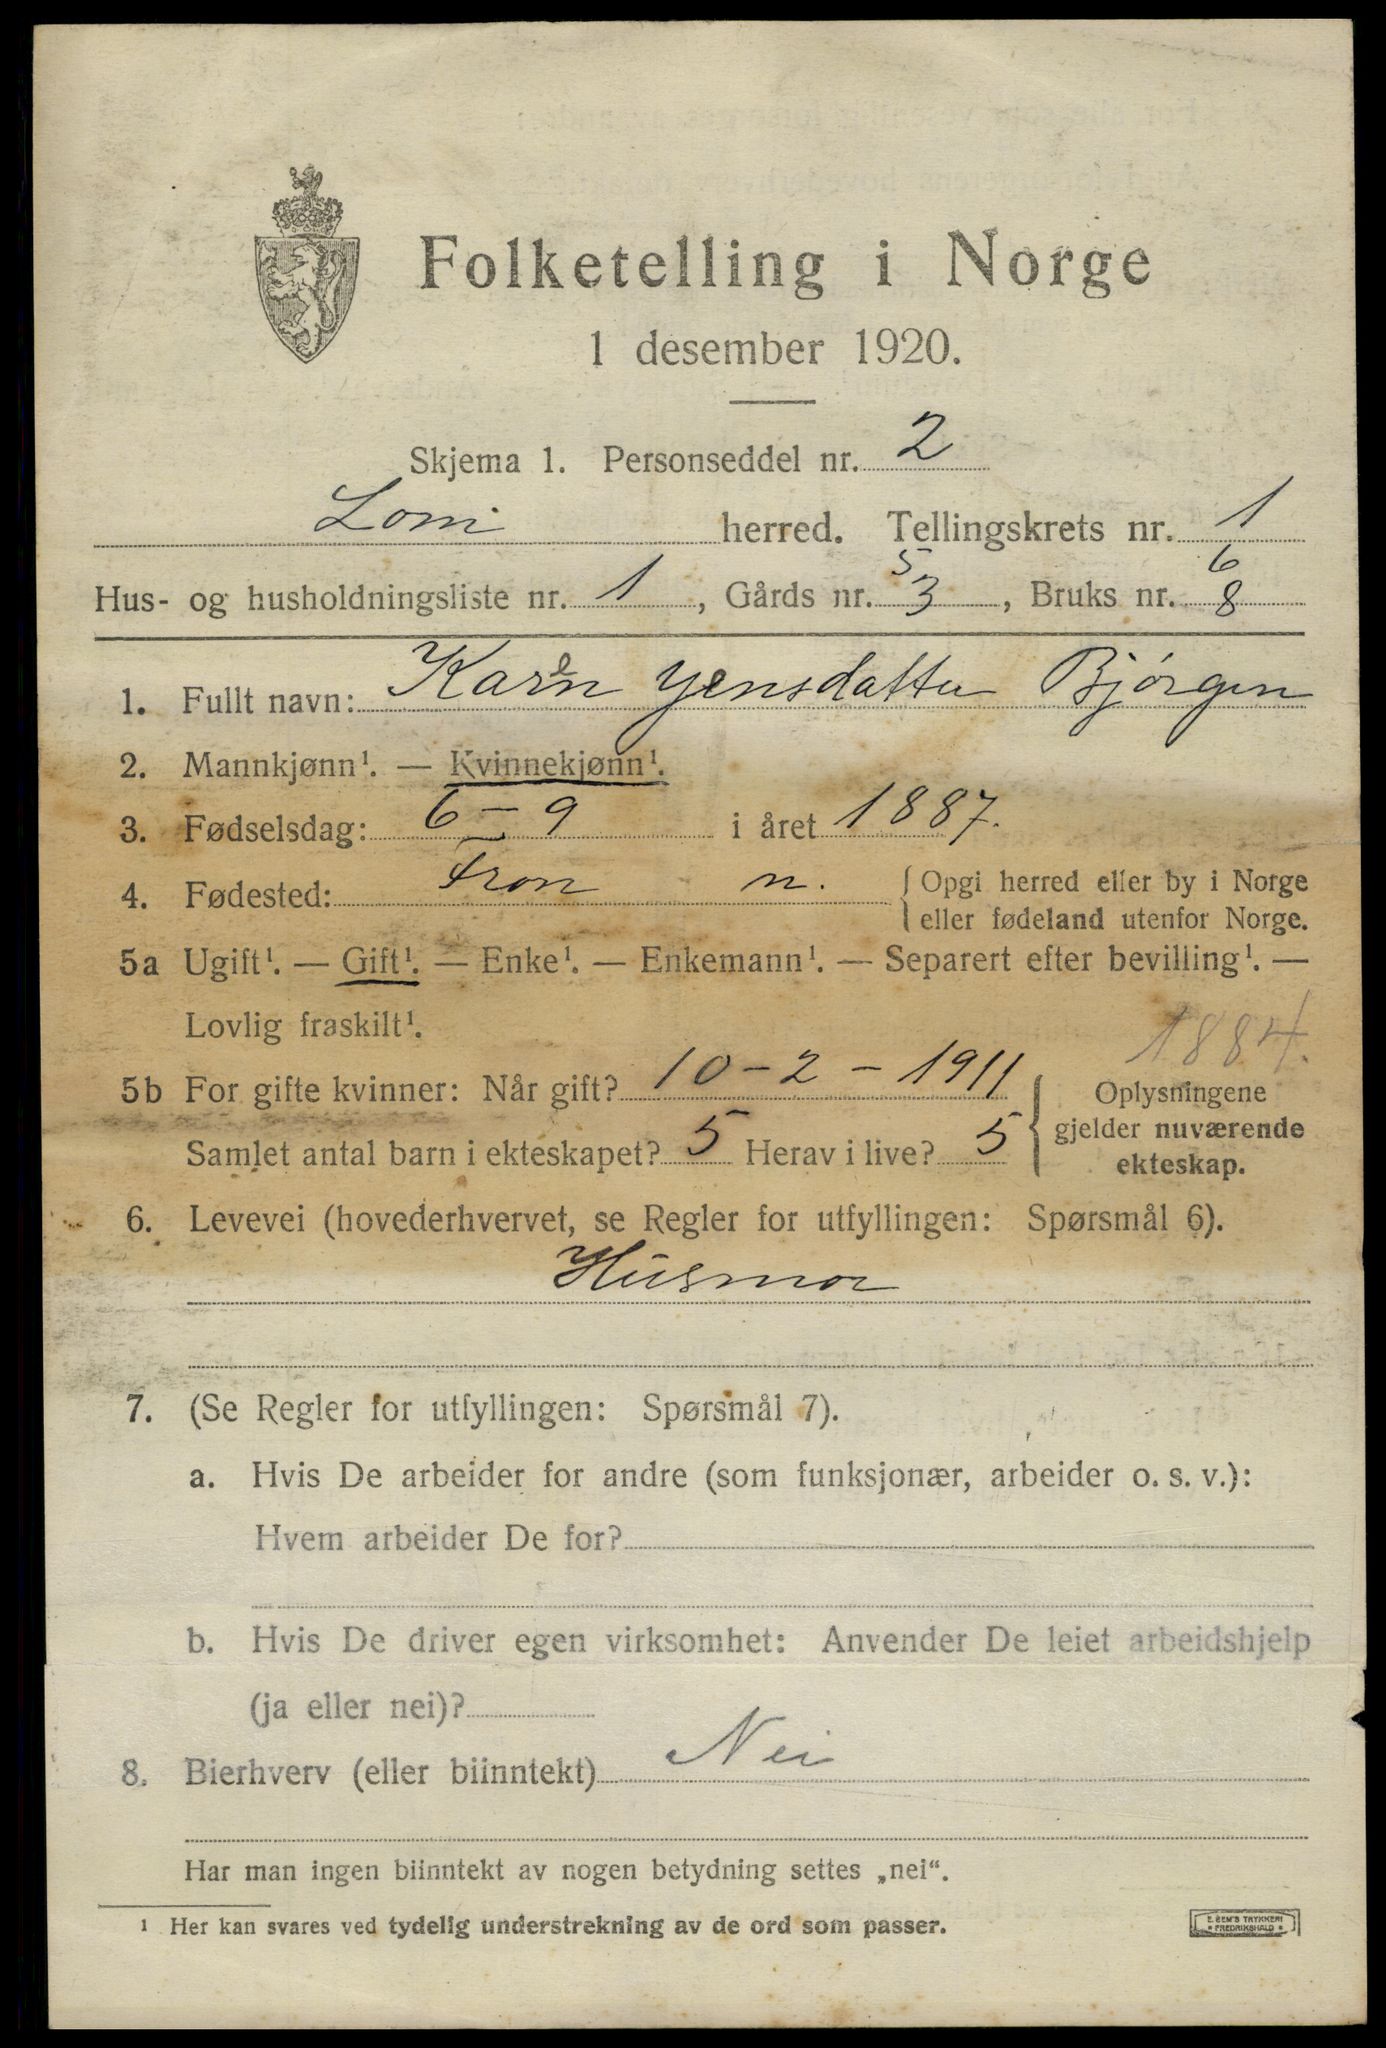 Folketelling i Norge
1 desember 1920.
Skjema 1. Personseddel nr. 2
Lom herred. Tellingskrets nr. 1
5 6
Hus- og husholdningsliste nr. 1, Gårds nr. 3, Bruks nr. 8
1. Fullt navn: Karen Jensdatter Bjørgen
2. Mannkjønn¹. — Kvinnekjønn¹.
3. Fødselsdag: 6 – 9 i året 1887.
4. Fødested: Fron n. { Opgi herred eller by i Norge
eller fødeland utenfor Norge.
5a Ugift¹. — Gift¹. — Enke¹. — Enkemann¹. — Separert efter bevilling¹. —
Lovlig fraskilt¹.
1884.
5b For gifte kvinner: Når gift? 10 – 2 – 1911
Samlet antal barn i ekteskapet? 5 Herav i live? 5
Oplysningene
gjelder nuværende
ekteskap.
6. Levevei (hovederhvervet, se Regler for utfyllingen: Spørsmål 6).
Husmor
7. (Se Regler for utfyllingen: Spørsmål 7).
a. Hvis De arbeider for andre (som funksjonær, arbeider o. s. v.):
Hvem arbeider De for?
b. Hvis De driver egen virksomhet: Anvender De leiet arbeidshjelp
(ja eller nei)?
8. Bierhverv (eller biinntekt) Nei
Har man ingen biinntekt av nogen betydning settes „nei“.
¹ Her kan svares ved tydelig understrekning av de ord som passer.
E. SEM'S TRYKKERI
* FREDRIKSHALD *